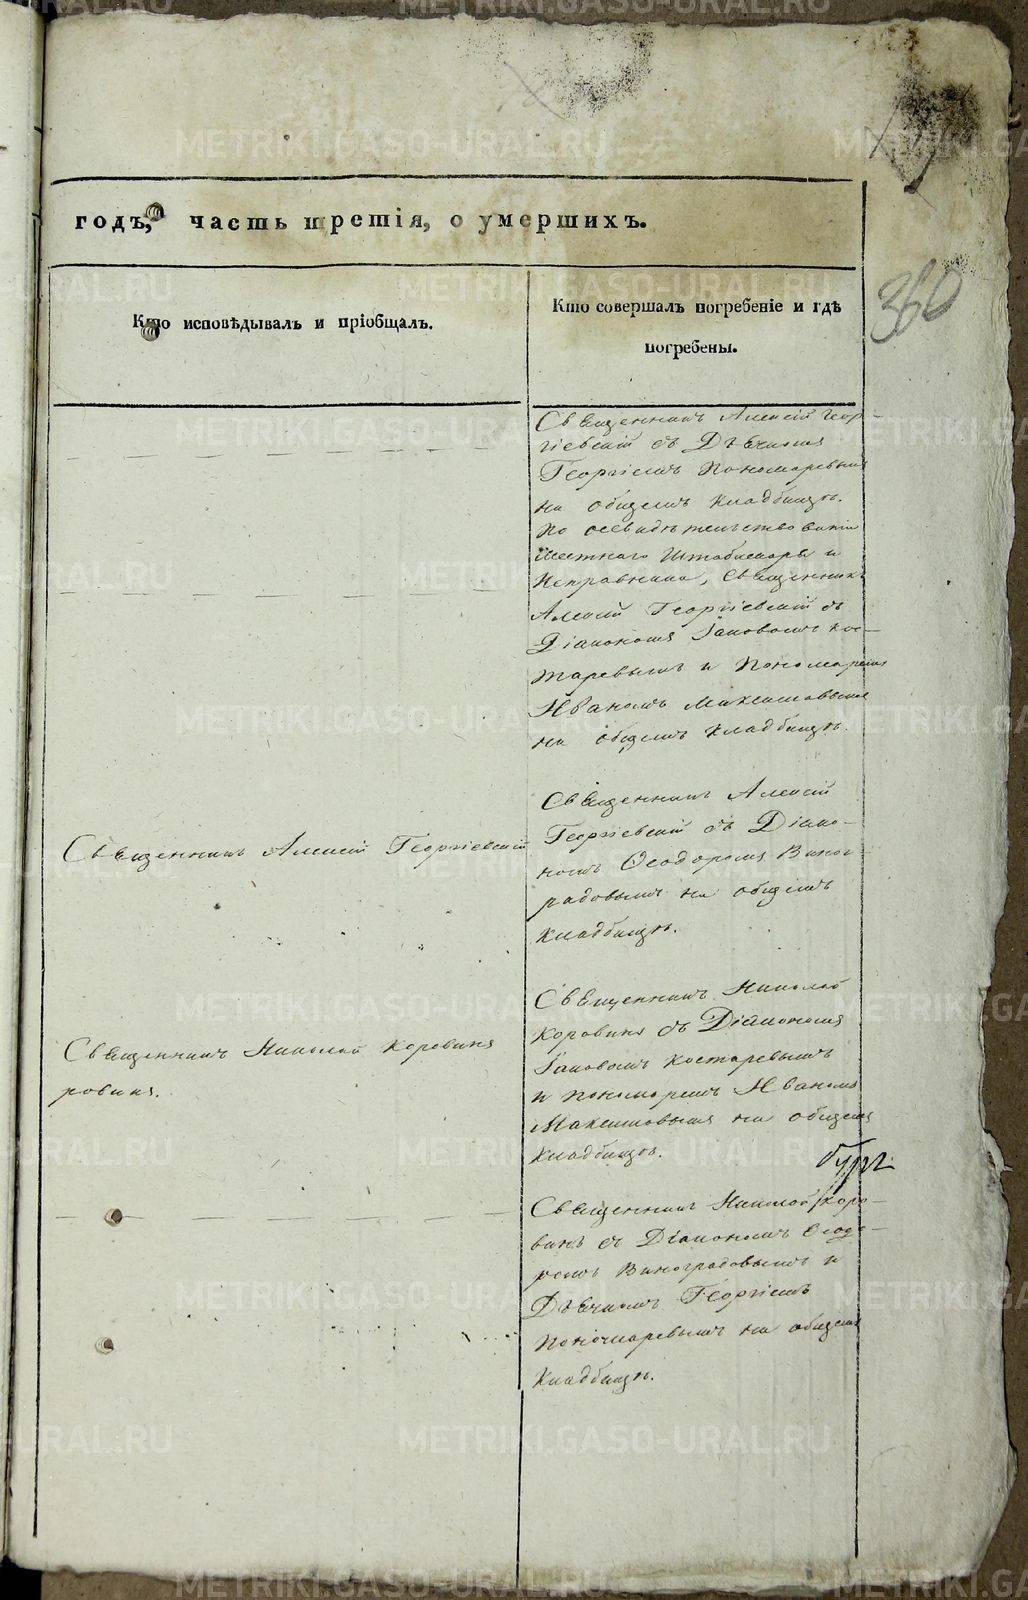 годъ, часть третія, о умершихъ.
360
Кто исповѣдывалъ и пріобщалъ.
Кто совершалъ погребеніе и гдѣ
погребены.
Священникъ Алексій Геор-
гіевскій съ Дьячкомъ
Георгіемъ Пономаревымъ
на общемъ кладбищѣ.
По освидѣтельствованіи
Исправника, Священникъ
Алексій Георгіевскій съ
Діакономъ Іаковомъ Кос-
таревымъ и Пономаремъ
Иваномъ Максимовымъ
на общемъ кладбищѣ.
Священникъ Алексій Георгіевскій
Священникъ Алексій
Георгіевскій съ Діако-
номъ Ѳеодоромъ Виног-
радовымъ на общемъ
кладбищѣ.
Священникъ Николай Коровинъ
ровинъ.
Священникъ Николай
Коровинъ съ Діакономъ
Іаковомъ Костаревымъ
и пономаремъ Иваномъ
Максимовымъ на общемъ
кладбищѣ.
Священникъ Николай Коро-
винъ съ Діакономъ Ѳеодо-
ромъ Виноградовымъ и
Дьячкомъ Георгіемъ
Пономаревымъ на общемъ
кладбищѣ.
METRIKI.GASO-URAL.RU